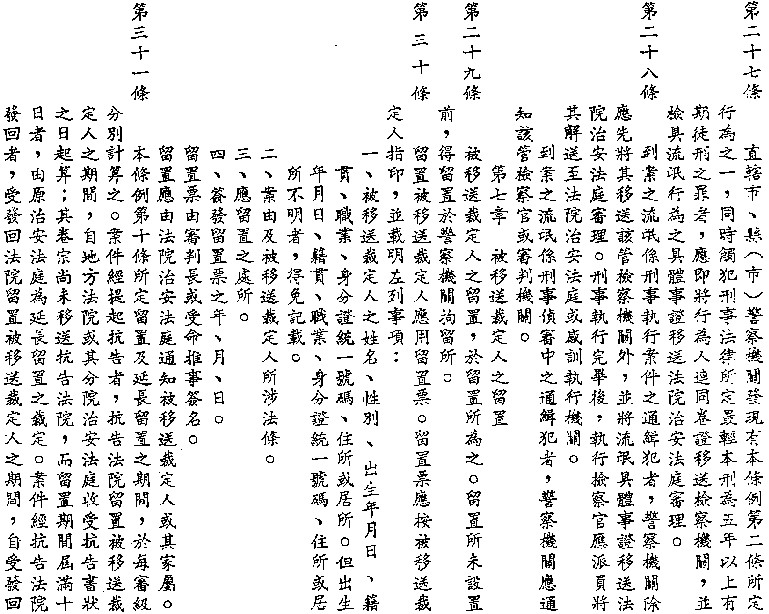 第二十七條　　直轄市、縣（市）警察機關發現有本條例第二條所定
行為之一，同時觸犯刑事法律所定最輕本刑為五年以上有
期徒刑之罪者，應即將行為人連同卷證移送檢察機關，並
檢具流氓行為之具體事證移送法院治安法庭審理。
第二十八條　　到案之流氓係刑事執行案件之通緝犯者，警察機關除
應先將其移送該管檢察機關外，並將流氓具體事證移送法
院治安法庭審理。刑事執行完畢後，執行檢察官應派員將
其解送至法院治安法庭或感訓執行機關。
到案之流氓係刑事偵審中之通緝犯者，警察機關應通
知該管檢察官或審判機關。
第七章　被移送裁定人之留置
第二十九條　　被移送裁定人之留置，於留置所為之。留置所未設置
前，得留置於警察機關拘留所。
第三十條　　留置被移送裁定人應用留置票。留置票應按被移送裁
定人指印，並載明左列事項：
一、被移送裁定人之姓名、性別、出生年月日、籍
貫、職業、身分證統一號碼、住所或居所。但出生
年月日、籍貫、職業、身分證統一號碼、住所或居
所不明者，得免記載。
二、案由及被移送裁定人所涉法條。
三、應留置之處所。
四、簽發留置票之年、月、日。
留置票由審判長或受命推事簽名。
留置應由法院治安法庭通知被移送裁定人或其家屬。
第三十一條　　本條例第十條所定留置及延長留置之期間，於每審級
分別計算之。案件經提起抗告者，抗告法院留置被移送裁
定人之期間，自地方法院或其分院治安法庭收受抗告書狀
之日起算；其卷宗尚未移送抗告法院，而留置期間屆滿十
日者，由原治安法庭為延長留置之裁定。案件經抗告法院
發回者，受發回法院留置被移送裁定人之期間，自受發回